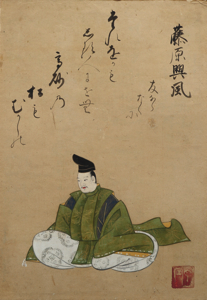 藤原興風
たれをかも
しる人に
せむ
高砂の
松も
むかしの
友なら
なくに